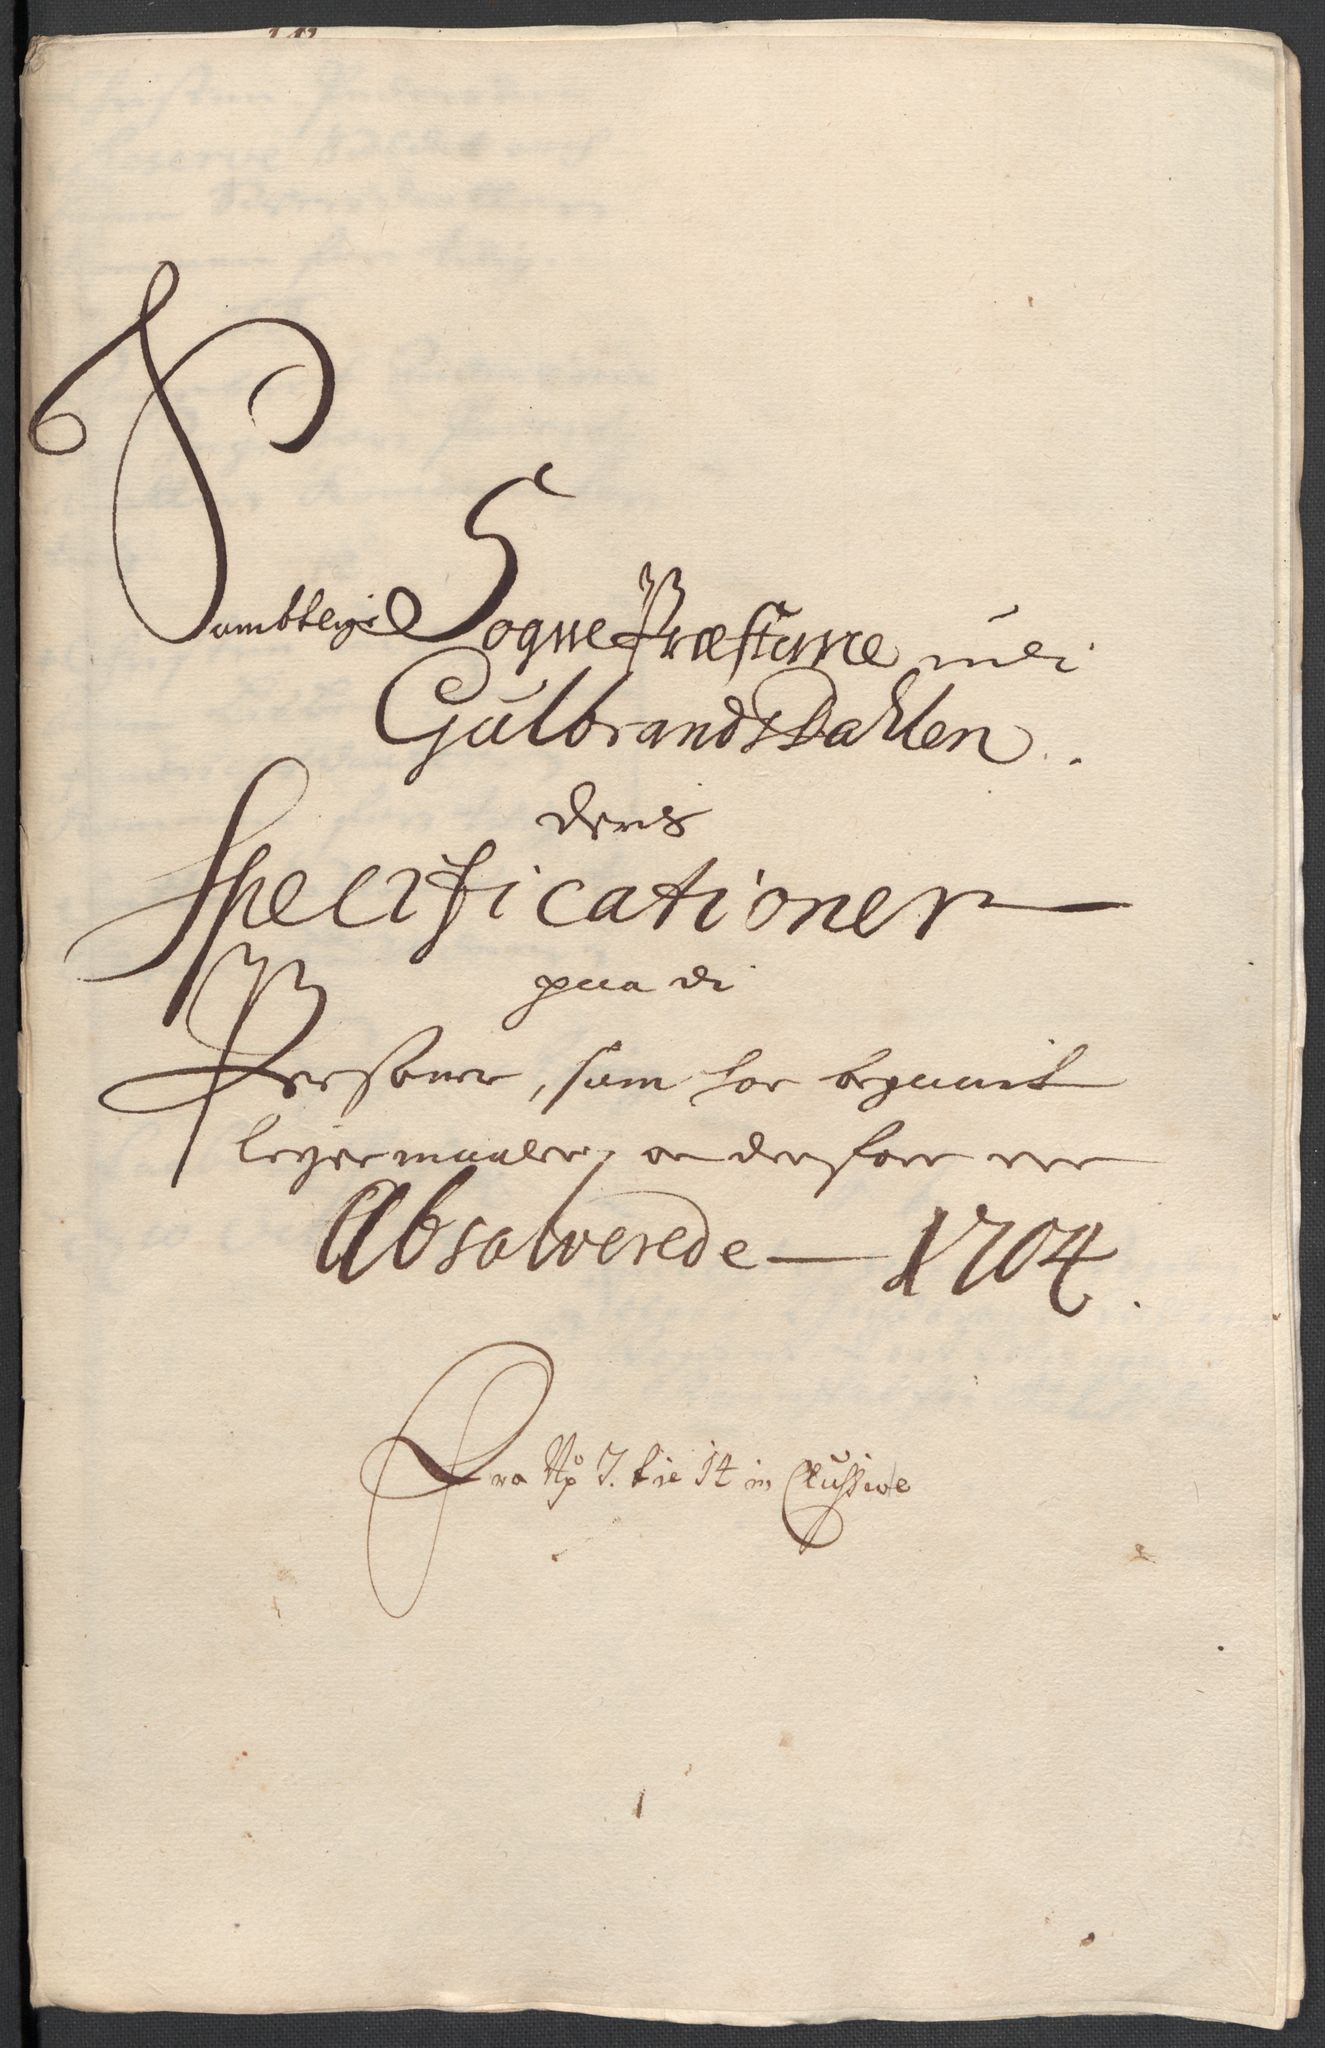 Sambtlige SognePræsterne udi
GulbrandsDahlen.
deris
Specificationer
paa di
Persower, som har begaait
leyermaaler, oc derfore ere
Absolverede — 1704.
Fra No 7. til 14 in Clusive